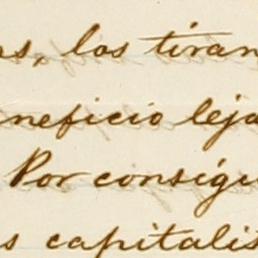 as, los tiran
neficio leja
Por consigu
s capitalis